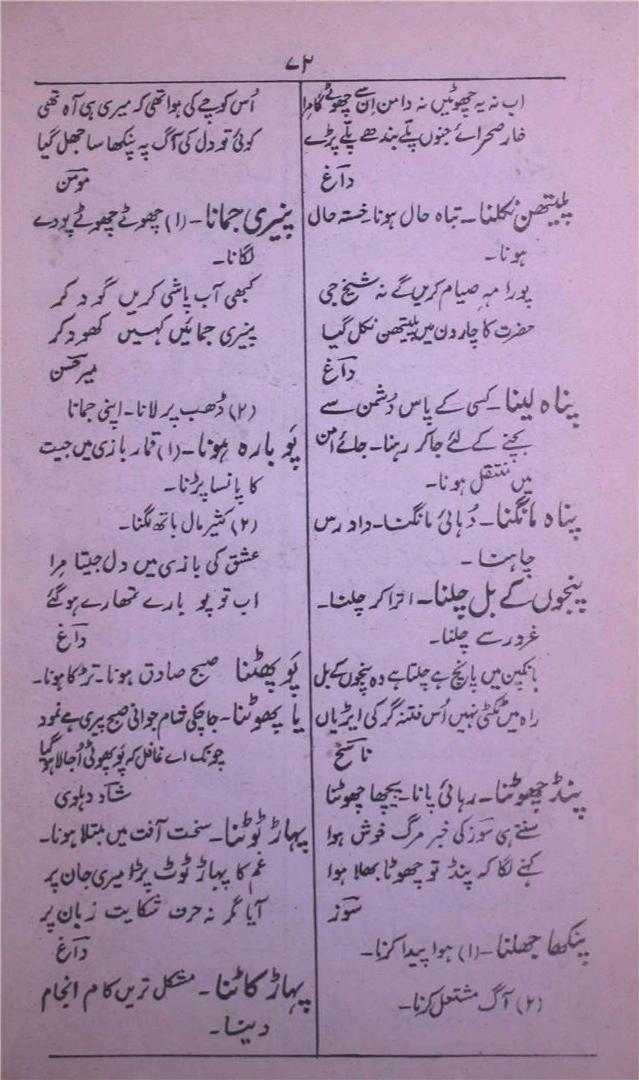 ۷۲
اب نہ یہ چھوٹیں نہ دامن ان سے چھوٹے گا مرا
خار صحرائے جنوں پلّے بندھے پلّے پڑے
داغ
پلیتھن نکلنا۔ تباہ حال ہونا۔ خستہ حال
ہونا۔
پورا مہِ صیام کریں گے نہ شیخ جی
حضرت کا چار دن میں پلیتھن نکل گیا
داغ
پناہ لینا۔ کسی کے پاس دشمن سے
بچنے کے لئے جا کر رہنا۔ جائے امن
میں منتقل ہونا۔
پناہ مانگنا۔ دُہائی مانگنا۔ داد رسی
چاہنا۔
پنجوں کے بل چلنا۔ اترا کر چلنا۔
غرور سے چلنا۔
بانکپن میں پانچ ہے چلتا ہے وہ پنجوں کے بل
راہ میں ٹکتی نہیں اُس فتنہ گر کی ایڑیاں
ناسخ
پنڈ چھوٹنا۔ رہائی پانا۔ پیچھا چھوٹنا
سنتے ہی سوز کی خبر مرگ خوش ہوا
کہنے لگا کہ پنڈ تو چھوٹا بھلا ہوا
سوز
پنکھا جھلنا۔ (۱) ہوا پیدا کرنا۔
(۲) آگ مشتعل کرنا۔
اُس کوچے کی ہوا تھی کہ میری ہی آہ تھی
کوئی تو دل کی آگ پہ پنکھا سا جھل گیا
مومن
پنیری جمانا۔ (۱) چھوٹے چھوٹے پودے
لگانا۔
کبھی آب پاشی کریں گود کر
پنیری جمائیں کہیں کھود کر
میر حسن
(۲) ڈھب پر لانا۔ اپنی جمانا
پَو بارہ ہونا۔ (۱) قمار بازی میں جیت
کا پانسا پڑنا۔
(۲) کثیر مال ہاتھ لگنا۔
عشق کی بازی میں دل جیتا مرا
اب تو پو بارے تمھارے ہو گئے
داغ
پَو پھٹنا صبح صادق ہونا۔ تڑکا ہونا۔
یا پھوٹنا۔ جا چکی شام جوانی صبح پیری ہے نمود
چونک اے غافل کہ پَو پھوٹی اُجالا ہو گیا
شاد دہلوی
پہاڑ ٹوٹنا۔ سخت آفت میں مبتلا ہونا۔
غم کا پہاڑ ٹوٹ پڑا میری جان پر
آیا مگر نہ حرف شکایت زبان پر
داغ
پہاڑ کاٹنا۔ مشکل ترین کام انجام
دینا۔